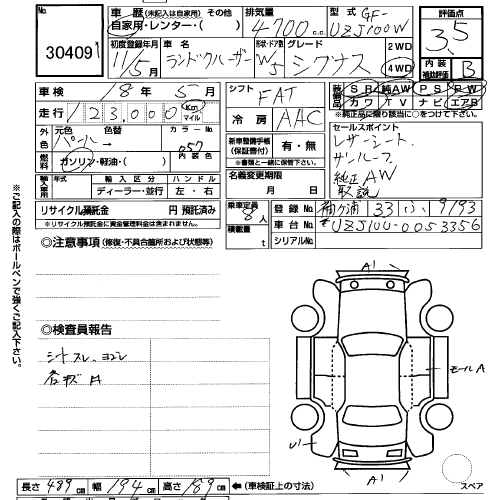 30409
車歴 (未記入は自家用) その他
自家用・レンター・( )
排気量 4700 c.c.
型式 GF-UZJ100W
評価点 3.5
初度登録年月 11/5月
車名 ランドクルーザーW
ドア形状 5
グレード シグナス
2WD
4WD
内装補助評価 B
車検 18年 5月
シフト FAT
装備品 SR 純AW PS PW
カワ TV ナビ エアB
※純正品に限り該当に○をつけて下さい
走行 123,000 Km マイル
冷房 AAC
セールスポイント
レザーシート
サンルーフ
純正AW
取説
外色 元色 パール 色替
カラーNo 057
内装色
燃料 ガソリン・軽油・( )
新車整備手帳(保証書) 有・無
※書類と一緒に保管下さい。
輸入車用 年式 輸入区分 ハンドル
ディーラー・並行 左・右
名義変更期限
月 日
リサイクル預託金 円 預託済み
※リサイクル預託金に資金管理料金は含まれません。
乗車定員 8人
積載量 t
登録No 袖ヶ浦 33 ふ 9193
車台No UZJ100-0053356
シリアルNo
◎注意事項 (修復・不具合箇所および状態等)
※ご記入の際はボールペンで強くご記入下さい。
◎検査員報告
シートスレ ヨゴレ
各キズ A
A1
モールA
U1
A1
長さ 489cm 幅 194cm 高さ 189cm ←(車検証上の寸法)
スペア